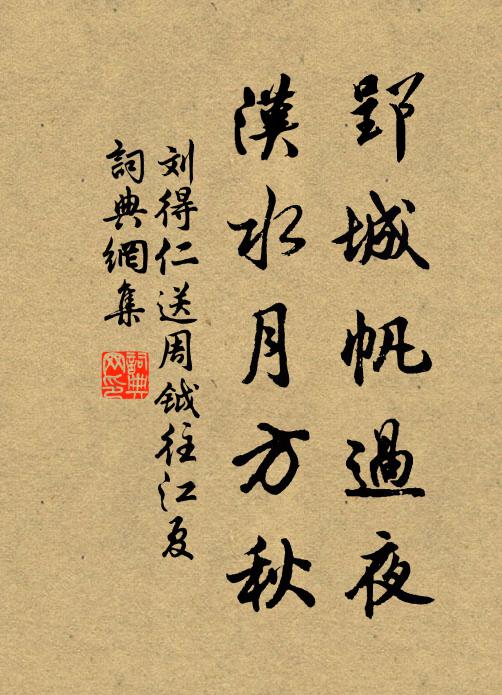 郢城帆過夜
漢水月方秋
刘得仁送周鉞往江夏
詞典網集
詞典网印